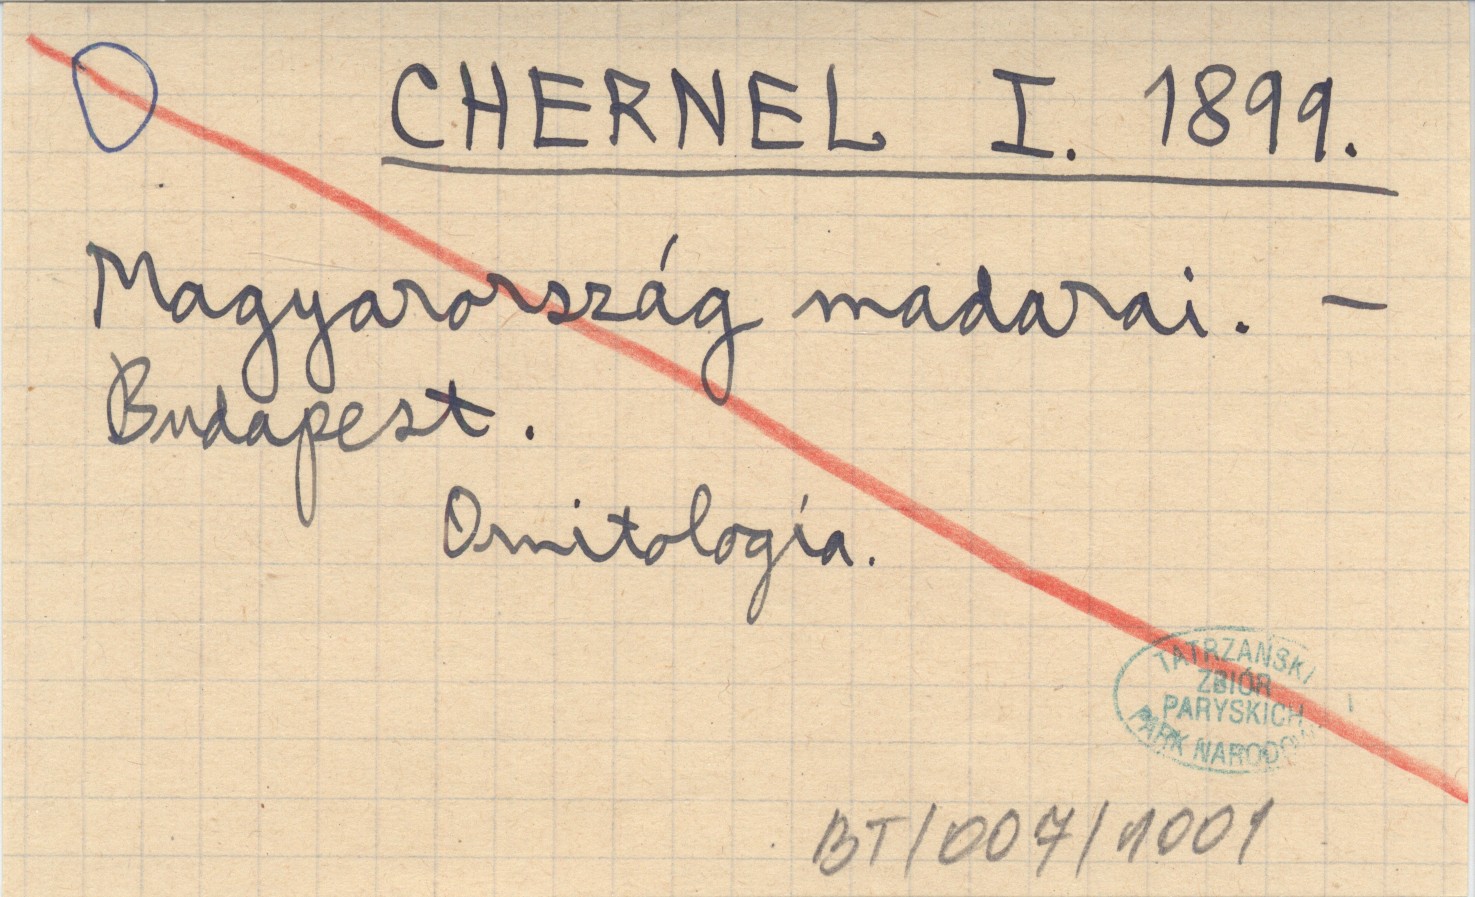 CHERNEL I. 1899.
Magyarország madarai. —
Budapest.
Ornitologia.
TATRZAŃSKI
ZBIÓR
PARYSKICH
PARK NARODOWY
BT/007/1001